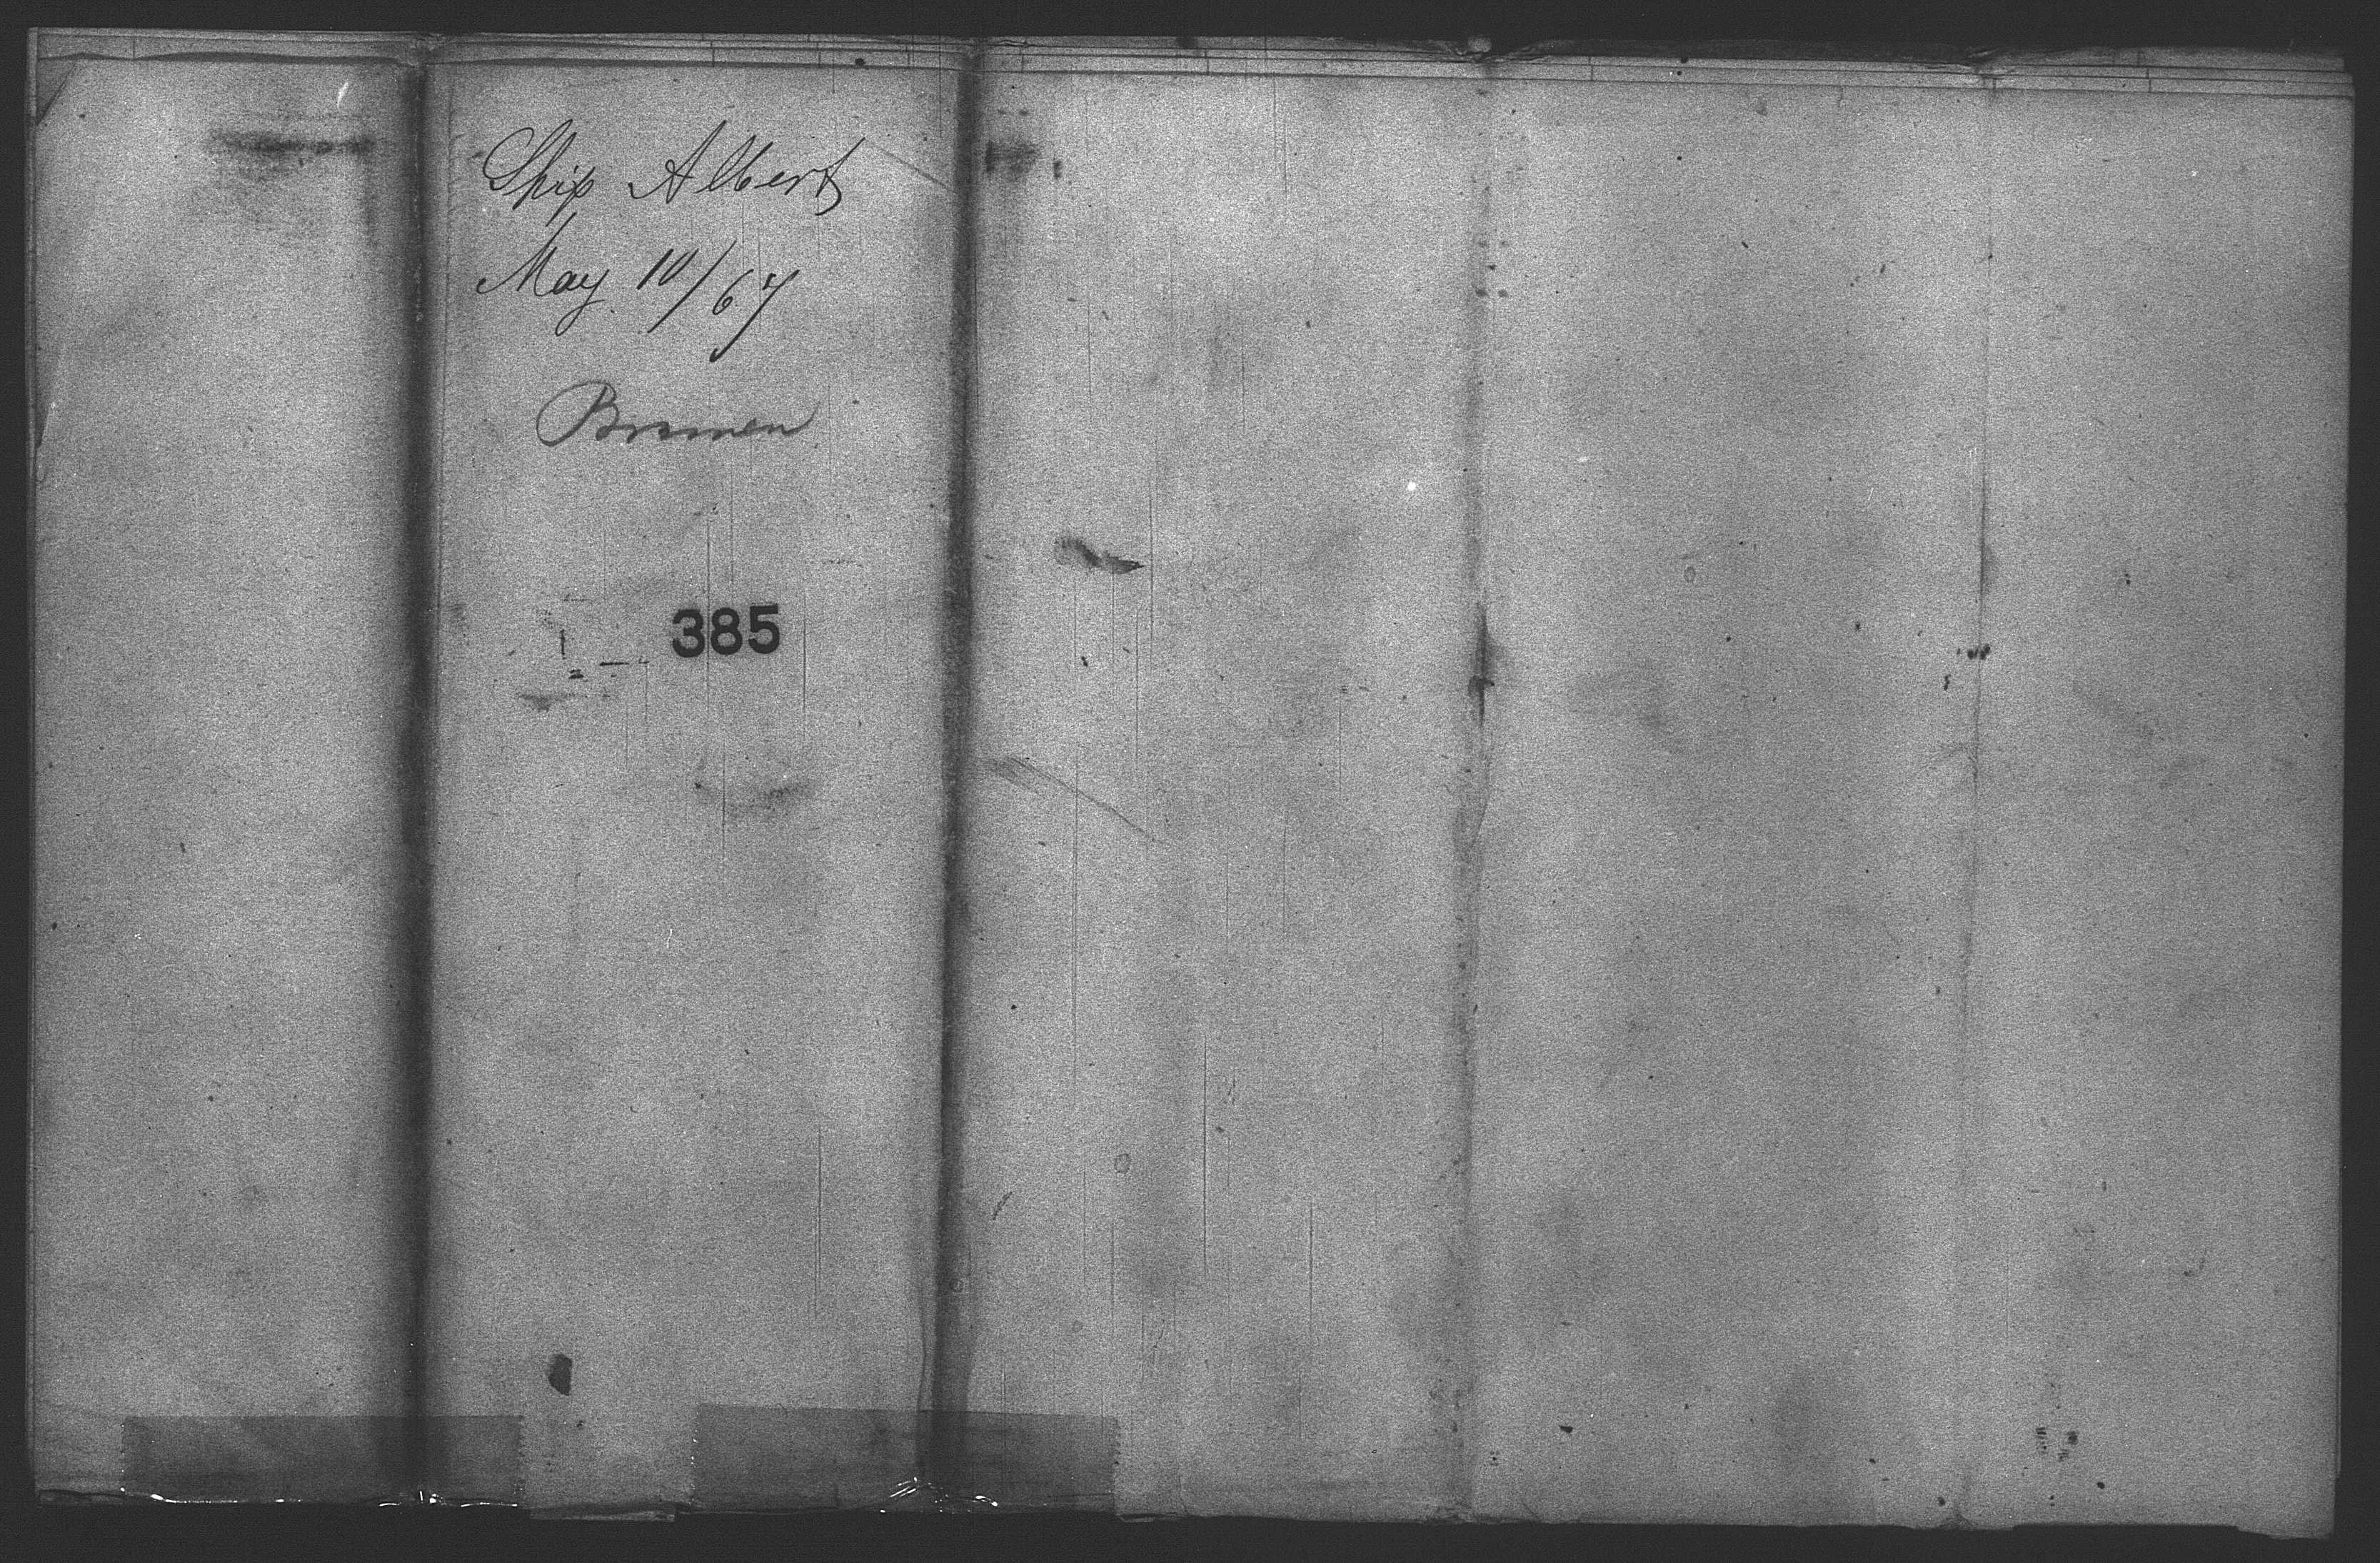 Ship Albert
May 10/67
Bremen
385